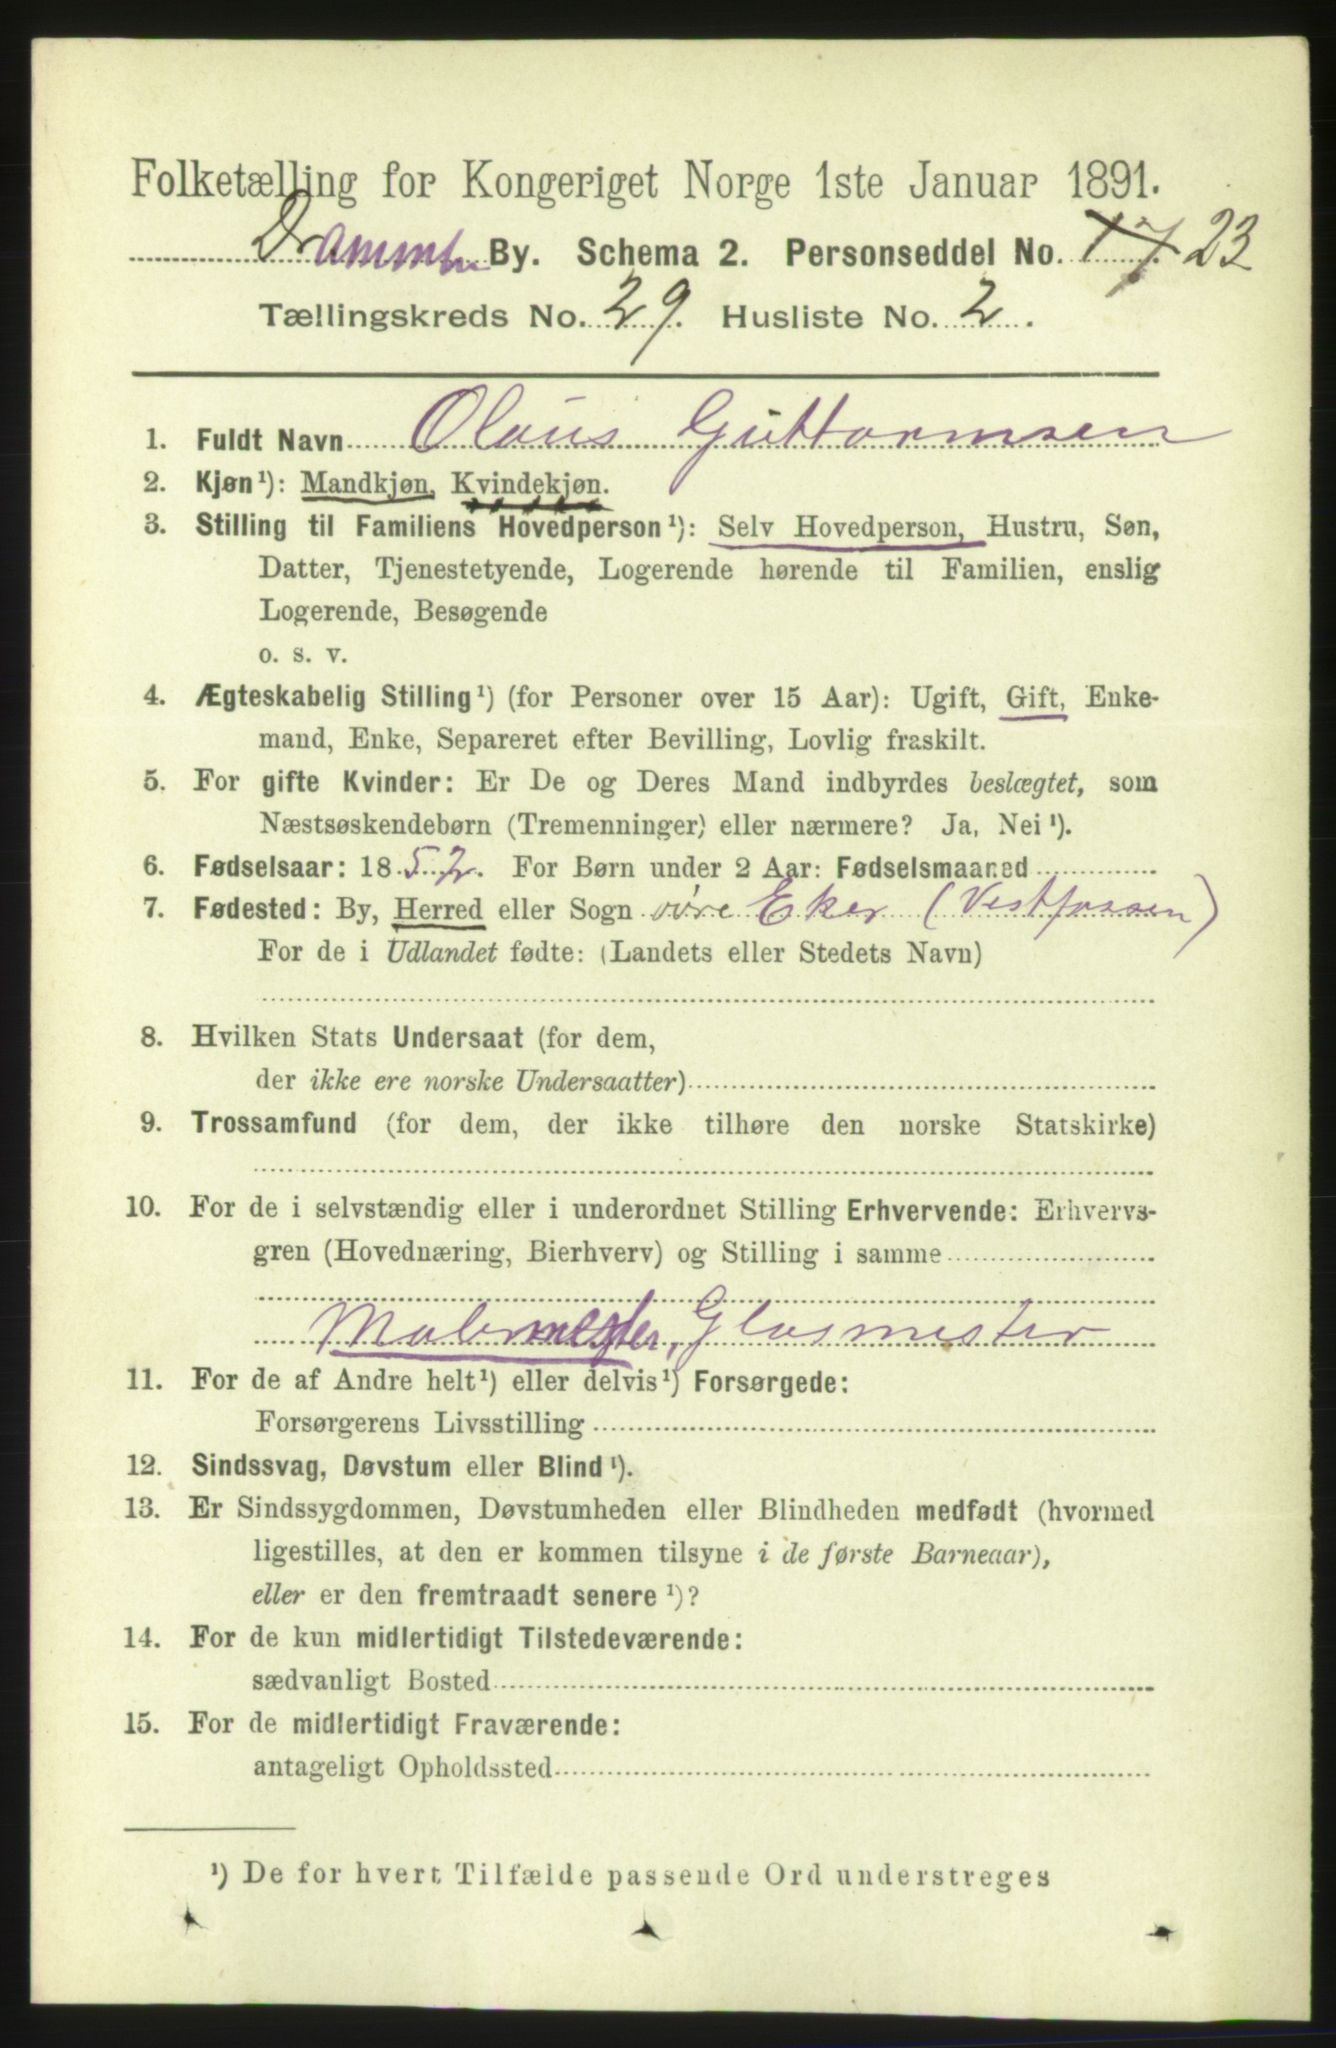 Folketælling for Kongeriget Norge 1ste Januar 1891.
Drammen By. Schema 2. Personseddel No. 17 23
Tællingskreds No. 29. Husliste No. 2.
1. Fuldt Navn Olaus Guttormsen
2. Kjøn¹): Mandkjøn, Kvindekjøn.
3. Stilling til Familiens Hovedperson¹): Selv Hovedperson, Hustru, Søn,
Datter, Tjenestetyende, Logerende hørende til Familien, enslig
Logerende, Besøgende
o. s. v.
4. Ægteskabelig Stilling¹) (for Personer over 15 Aar): Ugift, Gift, Enke-
mand, Enke, Separeret efter Bevilling, Lovlig fraskilt.
5. For gifte Kvinder: Er De og Deres Mand indbyrdes beslægtet, som
Næstsøskendebørn (Tremenninger) eller nærmere? Ja, Nei¹).
6. Fødselsaar: 1852. For Børn under 2 Aar: Fødselsmaaned
7. Fødested: By, Herred eller Sogn øvre Eker (Vestfossen)
For de i Udlandet fødte: (Landets eller Stedets Navn)
8. Hvilken Stats Undersaat (for dem,
der ikke ere norske Undersaatter)
9. Trossamfund (for dem, der ikke tilhøre den norske Statskirke)
10. For de i selvstændig eller i underordnet Stilling Erhvervende: Erhvervs-
gren (Hovednæring, Bierhverv) og Stilling i samme
Malermester, Glasmester
11. For de af Andre helt¹) eller delvis¹) Forsørgede:
Forsørgerens Livsstilling
12. Sindssvag, Døvstum eller Blind¹).
13. Er Sindssygdommen, Døvstumheden eller Blindheden medfødt (hvormed
ligestilles, at den er kommen tilsyne i de første Barneaar),
eller er den fremtraadt senere¹)?
14. For de kun midlertidigt Tilstedeværende:
sædvanligt Bosted
15. For de midlertidigt Fraværende:
antageligt Opholdssted
¹) De for hvert Tilfælde passende Ord understreges